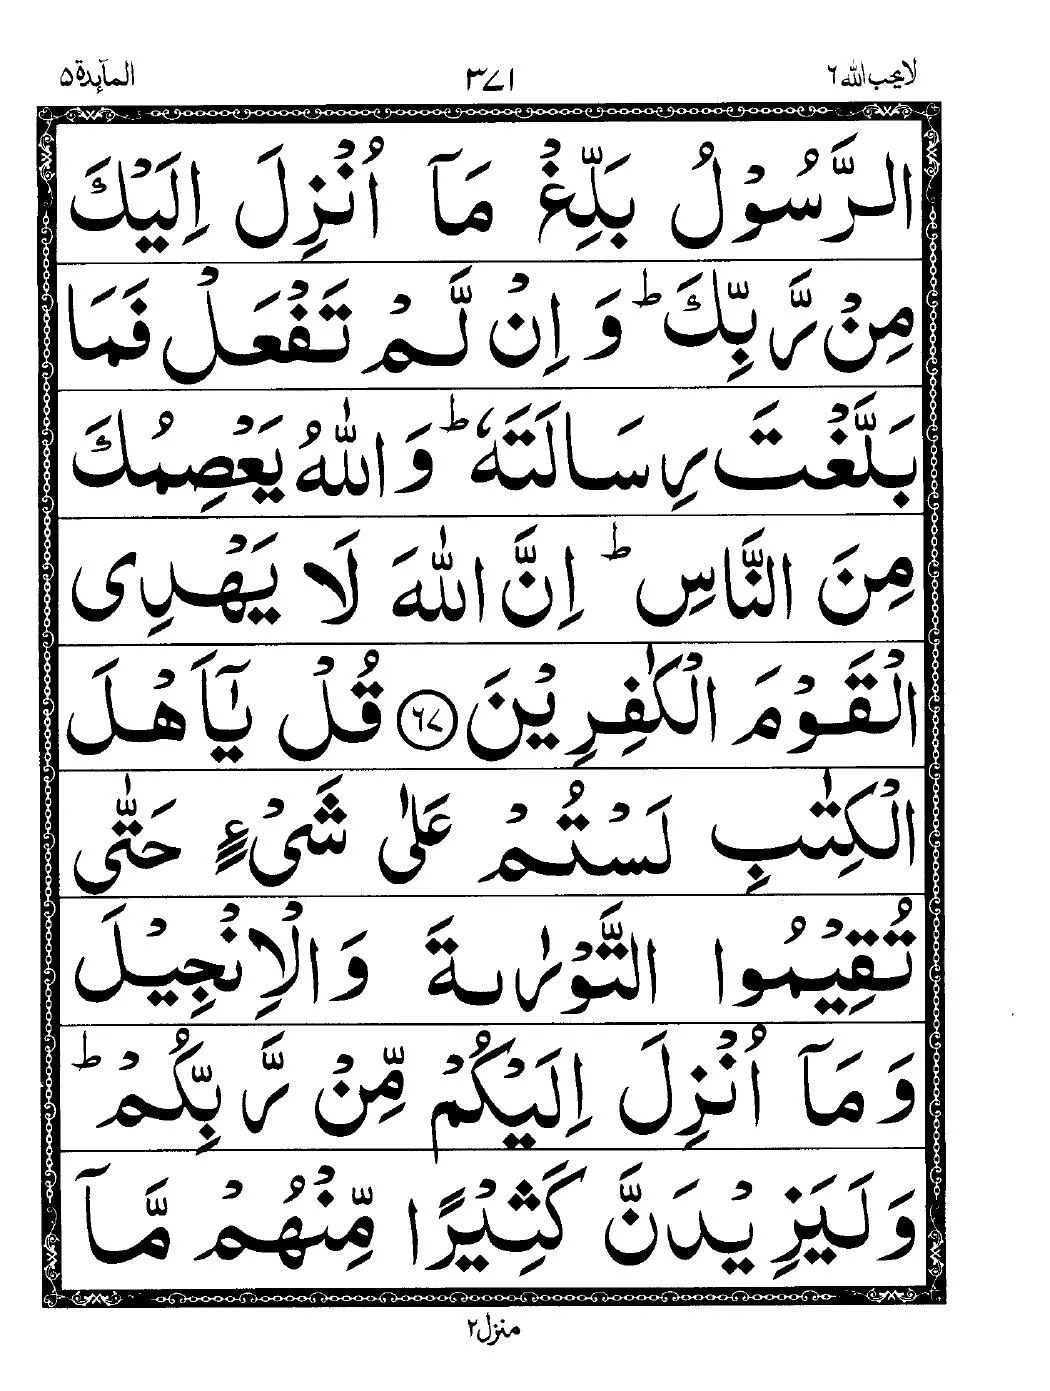 لا یحب الله ۶
۳۷۱
المآىِٕدة ۵
الرَّسُوْلُ بَلِّغْ مَاۤ اُنْزِلَ اِلَیْكَ
مِنْ رَّبِّكَ ؕ وَ اِنْ لَّمْ تَفْعَلْ فَمَا
بَلَّغْتَ رِسَالَتَهٗ ؕ وَ اللّٰهُ یَعْصِمُكَ
مِنَ النَّاسِ ؕ اِنَّ اللّٰهَ لَا یَهْدِی
الْقَوْمَ الْكٰفِرِیْنَ ﴿۶۷﴾ قُلْ یٰۤاَهْلَ
الْكِتٰبِ لَسْتُمْ عَلٰی شَیْءٍ حَتّٰی
تُقِیْمُوا التَّوْرٰىةَ وَ الْاِنْجِیْلَ
وَ مَاۤ اُنْزِلَ اِلَیْكُمْ مِّنْ رَّبِّكُمْ ؕ
وَ لَیَزِیْدَنَّ كَثِیْرًا مِّنْهُمْ مَّاۤ
منزل ۲